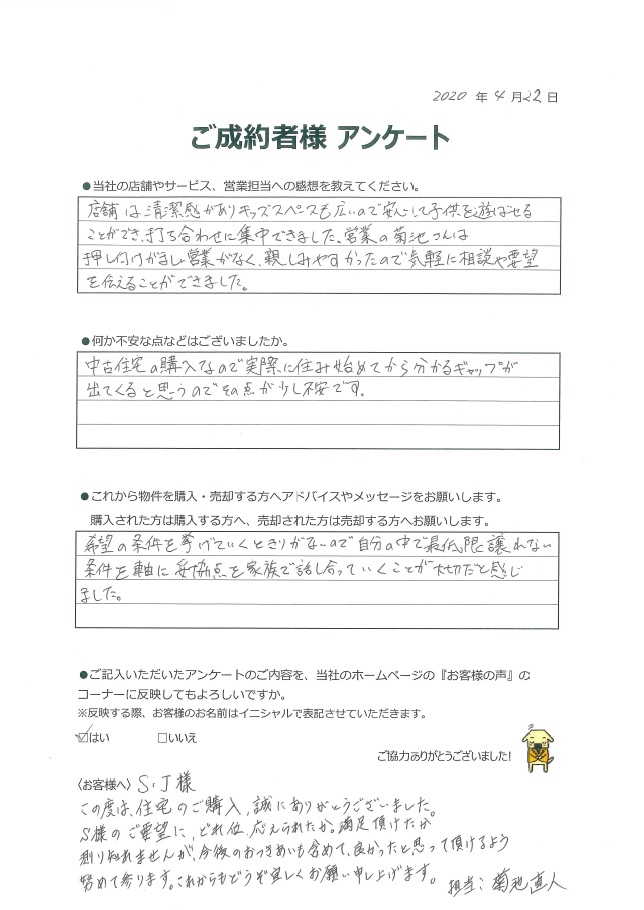 2020 年 4 月 22 日
ご成約者様 アンケート
●当社の店舗やサービス、営業担当への感想を教えてください。
店舗は清潔感がありキッズスペースも広いので安心して子供を遊ばせる
ことができ、打ち合わせに集中できました。営業の菊池さんは
押し付けがましい営業がなく、親しみやすかったので気軽に相談や要望
を伝えることができました。
●何か不安な点などはございましたか。
中古住宅の購入なので実際に住み始めてから分かるギャップが
出てくると思うのでその点が少し不安です。
●これから物件を購入・売却する方へアドバイスやメッセージをお願いします。
購入された方は購入する方へ、売却された方は売却する方へお願いします。
希望の条件を挙げていくときりがないので自分の中で最低限譲れない
条件を軸に妥協点を家族で話し合っていくことが大切だと感じ
ました。
●ご記入いただいたアンケートのご内容を、当社のホームページの『お客様の声』の
コーナーに反映してもよろしいですか。
※反映する際、お客様のお名前はイニシャルで表記させていただきます。
☑はい □いいえ
ご協力ありがとうございました!
〈お客様へ〉 S・J様
この度は、住宅のご購入、誠にありがとうございました。
S様のご要望に、どれ位、応えられたか。満足頂けたか
測り知れませんが、今後のおつきあいも含めて、良かったと思って頂けるよう
努めて参ります。これからもどうぞ宜しくお願い申し上げます。 担当:菊池直人